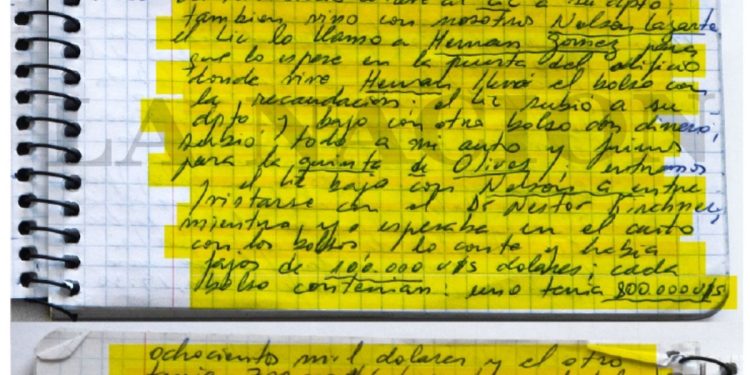 tambien vino con nosotros Nelson Lazarte,
el Lic lo llamo a Hernan Gomez para
que lo espere en la puerta del edificio
donde vive Hernan llevó el bolso con
la recaudacion: el Lic subio a su
dpto y bajo con otro bolso con dinero;
subio todo a mi auto y fuimos
para la quinta de Olivos entramos
y el Lic bajo con Nelson a entre
vistarse con el Dr Nestor Kirchner,
mientras yo esperaba en el auto
con los bolsos lo conte y habia
fajos de 100.000 U$S dolares; cada
bolso contenian: uno tenia 800.000 U$S
ochociento mil dolares y el otro
tenia
LA NACION